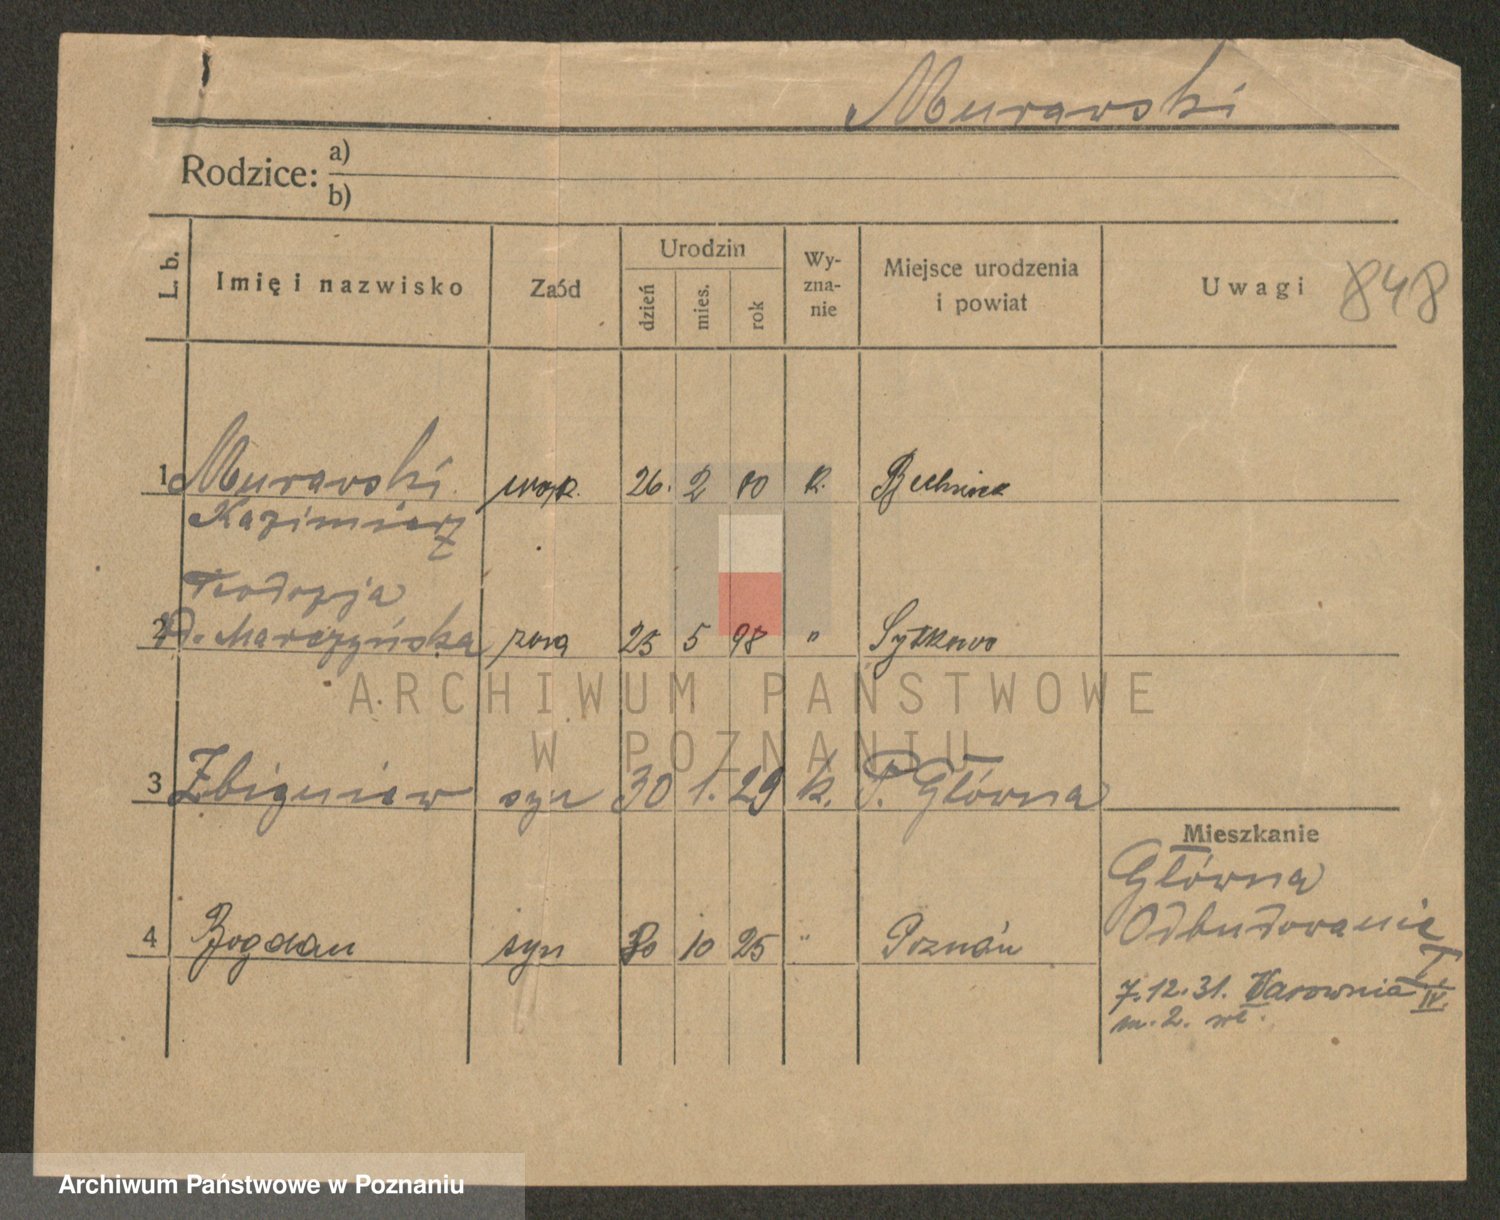 Murawski
Rodzice: a)
b)
L. b. Imię i nazwisko Zaód Urodzin dzień mies. rok Wy-zna-nie Miejsce urodzenia i powiat Uwagi 848
1 Murawski 26. 2 80 k.
Kazimierz
Teodozja
2 d. Marczyńska żona 25 5 98 " Sytkowo
3 Zbigniew syn 30 1. 29 k. P. Główna
Mieszkanie
Główna
Odbudowanie
I
4 Bogdan syn 30 10 25 " Poznań
7.12.31. IV.
m. 2.
ARCHIWUM PAŃSTWOWE
W POZNANIU
Archiwum Państwowe w Poznaniu